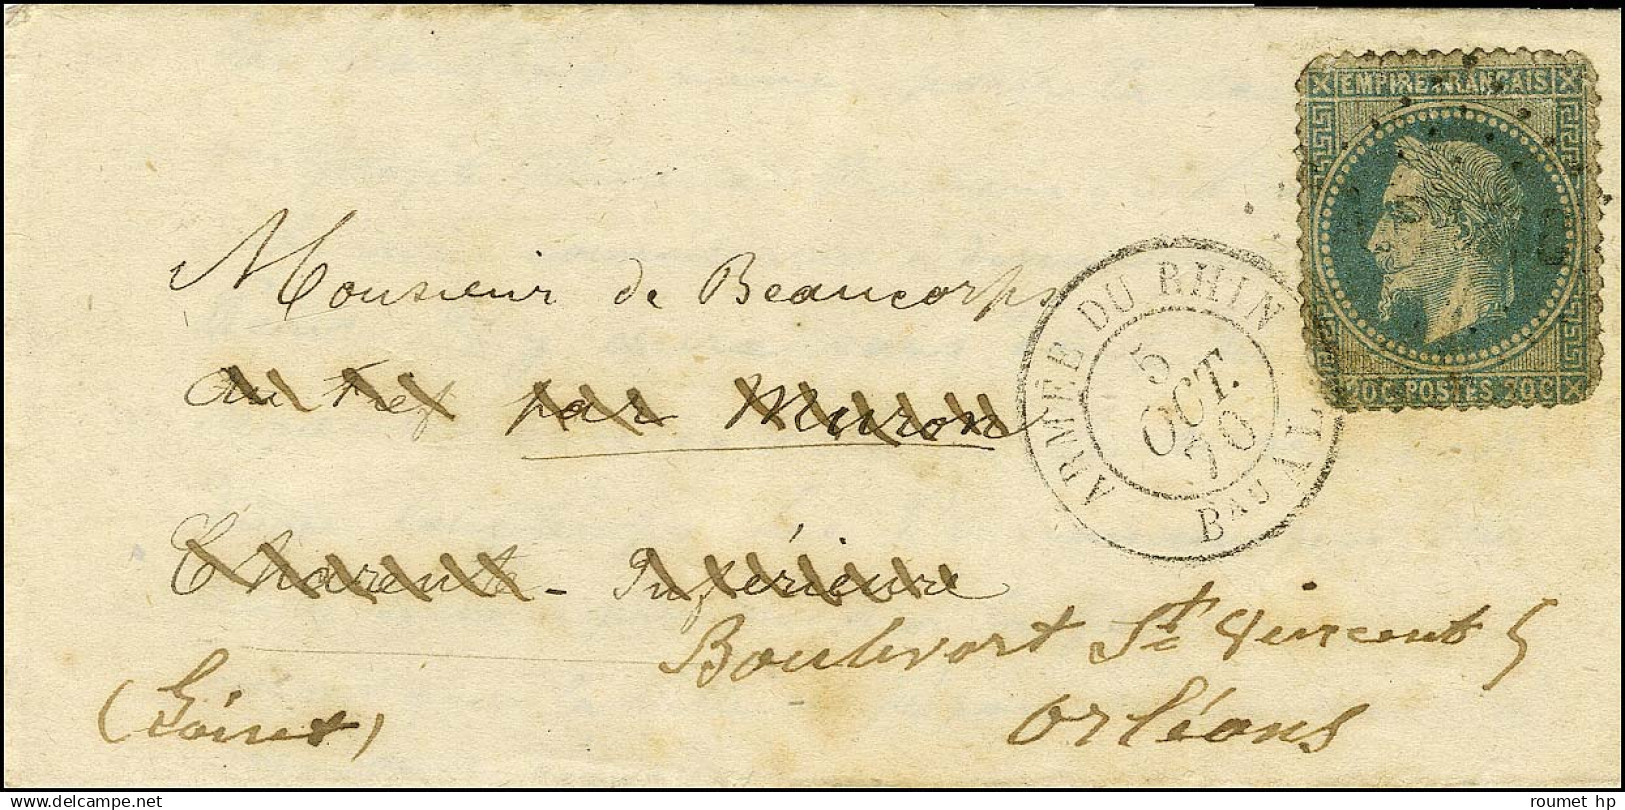 EMPIRE FRANÇAIS
20C POSTES 20C
ARMÉE DU RHIN
5
OCT.
70
Bau AL
Monsieur de Beaucorps
au Tref par Muron
Charente - Inférieure
Boulvart St Vincent 5
Orléans
(Loiret)
roumet hp